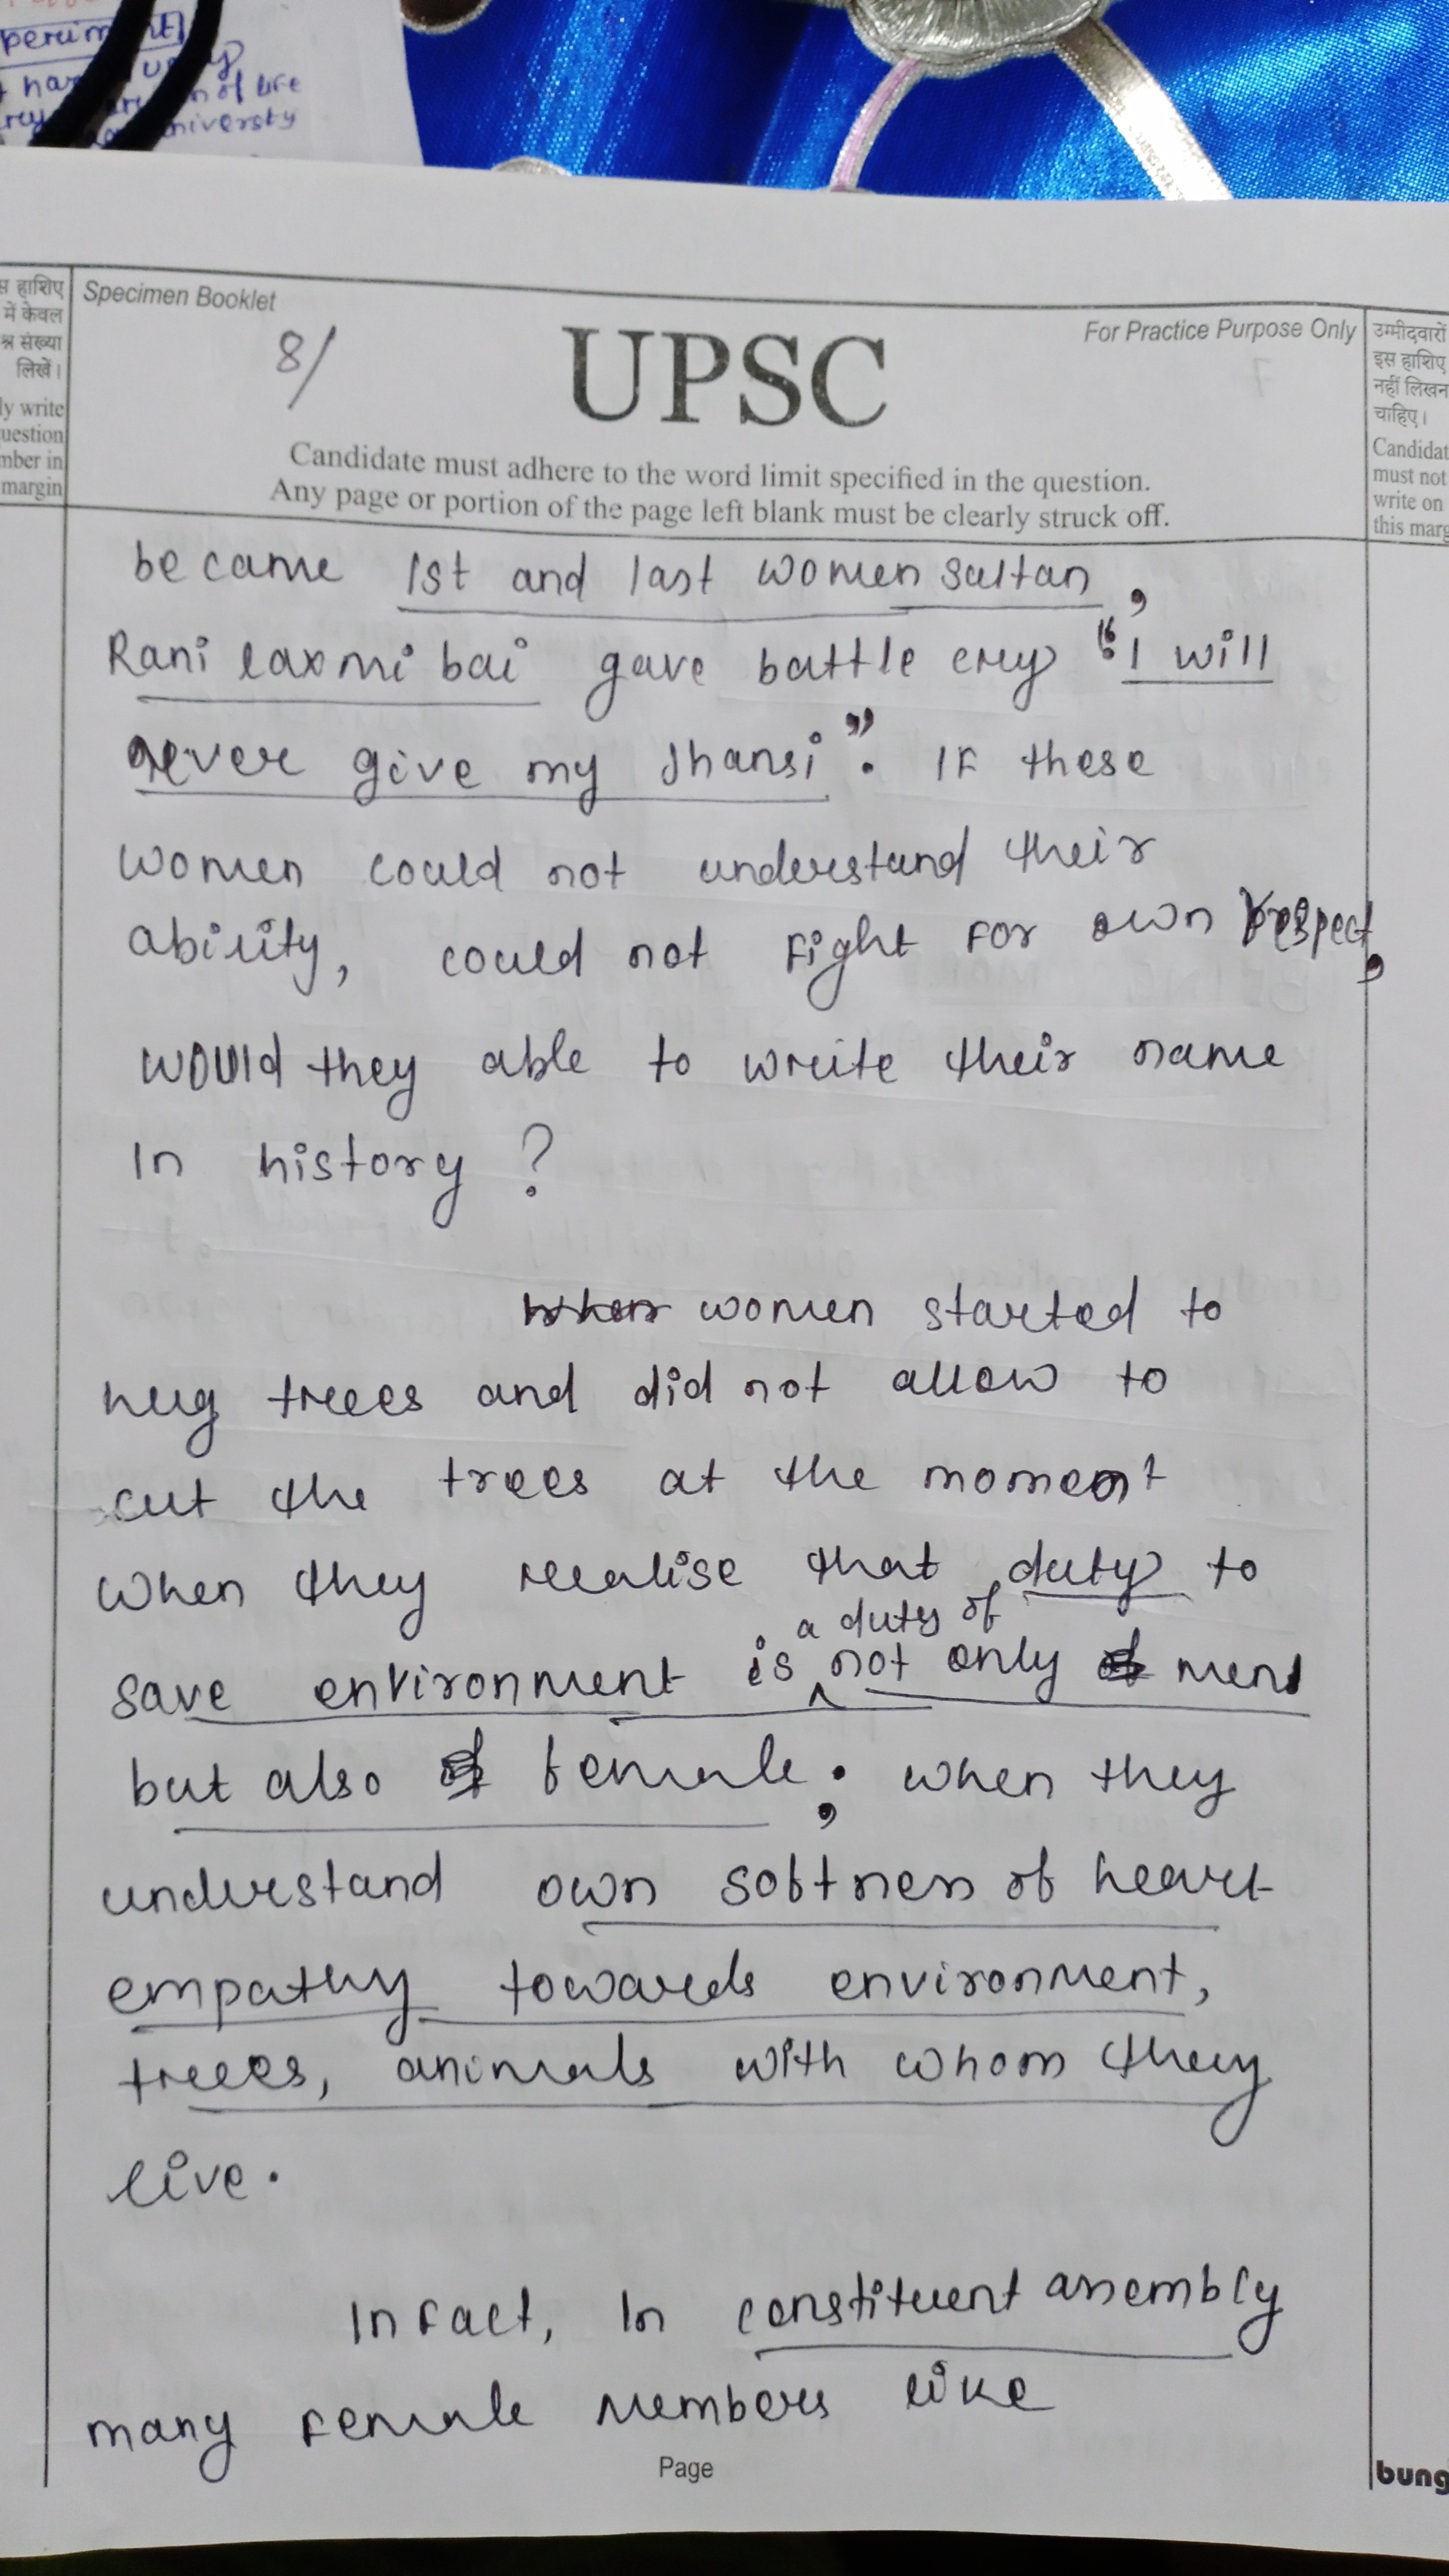 periment
of life
university
स हाशिए
में केवल
श्न संख्या
लिखें।
ly write
uestion
mber in
margin
Specimen Booklet
8/
UPSC
For Practice Purpose Only
उम्मीदवारों
इस हाशिए
नहीं लिखन
चाहिए।
Candidat
must not
write on
this marg
Candidate must adhere to the word limit specified in the question.
Any page or portion of the page left blank must be clearly struck off.
became 1st and last women sultan,
Rani laxmi bai gave battle cry "I will
never give my Jhansi". If these
women could not understand their
ability, could not fight for own respect,
would they able to write their name
in history?
when women started to
hug trees and did not allow to
cut the trees at the moment
when they realise that duty to
save environment is a duty of not only of men
but also of female; when they
understand own softness of heart
empathy towards environment,
trees, animals with whom they
live.
Infact, In constituent assembly
many female members like
Page
bung